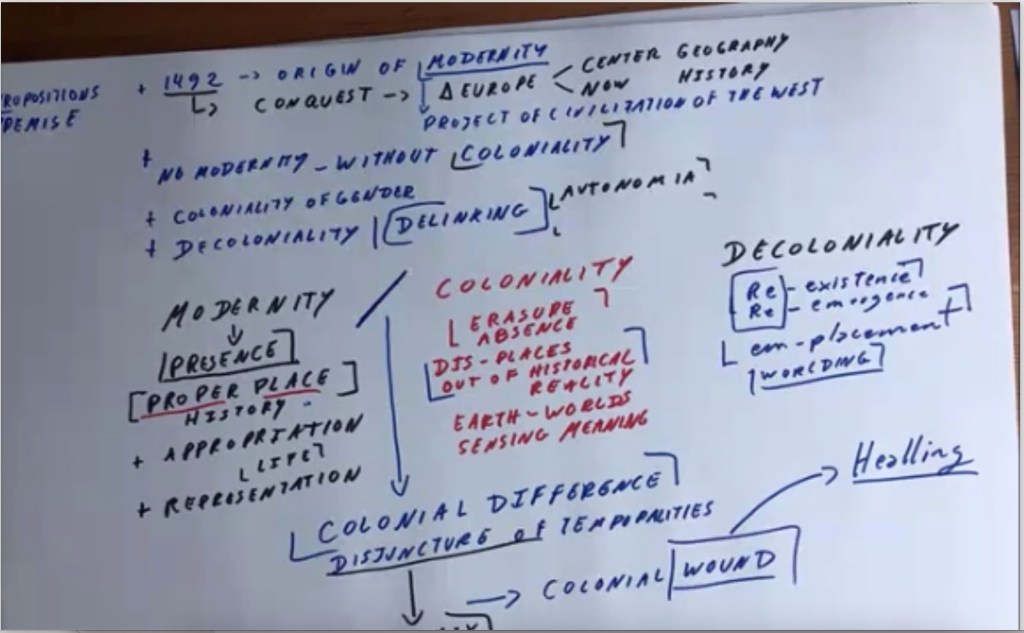 + 1492 -> ORIGIN OF MODERNITY
CONQUEST -> Δ EUROPE < CENTER GEOGRAPHY
NOW HISTORY
PROJECT OF CIVILITATION OF THE WEST
ROPOSITIONS
REMISE
+ NO MODERNITY - WITHOUT COLONIALITY
+ COLONIALITY OF GENDER
+ DECOLONIALITY | DELINKING AUTONOMIA
MODERNITY /
PRESENCE
[PROPER PLACE]
HISTORY
+ APPROPRIATION
LIFE
+ REPRESENTATION
COLONIALITY
ERASURE
ABSENCE
DIS-PLACES
OUT OF HISTORICAL
REALITY
EARTH-WORLDS
SENSING MEANING
DECOLONIALITY
Re-existence
Re-emergence
em-placement
WORLDING
COLONIAL DIFFERENCE
DISJUNCTURE OF TEMPOPALITIES
-> COLONIAL WOUND
-> Healling